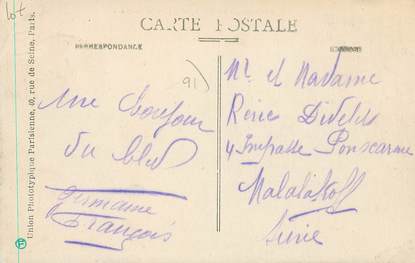 lot
CARTE POSTALE
CORRESPONDANCE
Union Phototypique Parisienne, 40, rue de Seine, Paris.
91)
Mr et Madame
une bonjour
du bled
4 Impasse
Malalakoff
Seine
Germaine
François